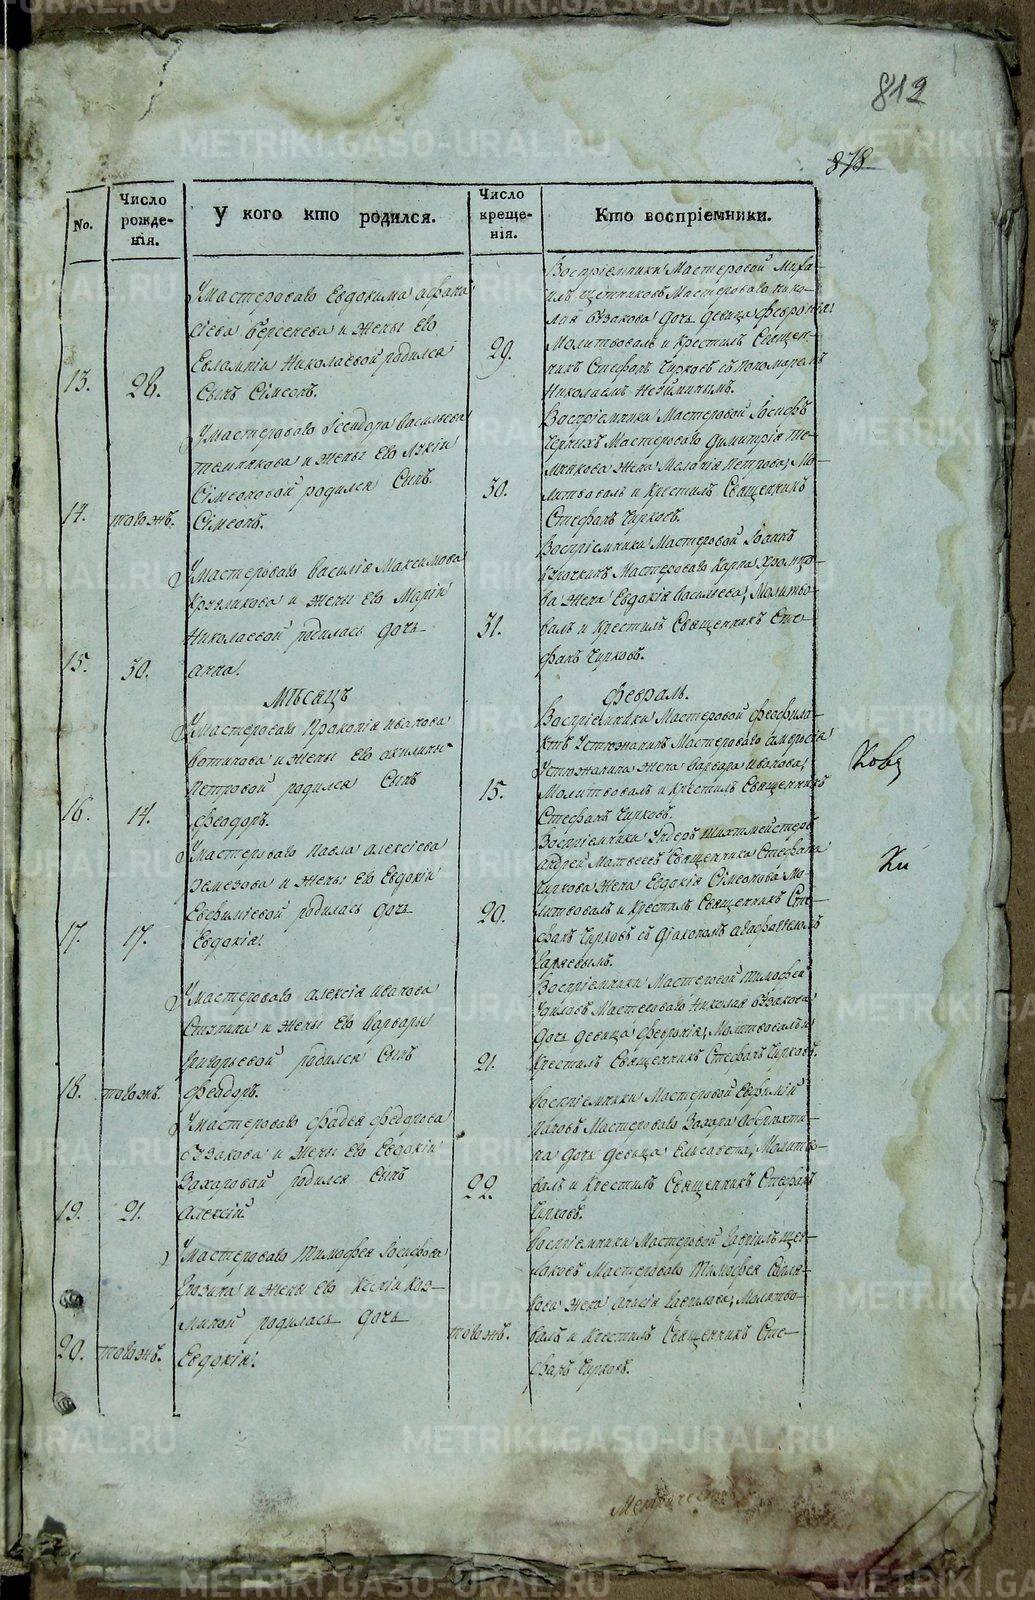 812
878
No.
Число рожде-нія.
У кого кто родился.
Число креще-нія.
Кто воспріемники.
13.
28.
У мастероваго Евдокима Афана
сіева Берсенева и жены его
Евлампіи Николаевой родился
Сынъ Сімеонъ.
29.
Воспріемники Мастеровой Миха-
илъ Щетниковъ Мастероваго Нико-
лая Бузакова дочь девица Февронія
Молитвовалъ и Крестилъ Священ-
никъ Стефанъ Чирковъ съ пономаремъ
Николаемъ
14.
тогожъ.
У мастероваго Ісидора Васильева
и жены его Лукіи
Сімеоновой родился Сынъ
Сімеонъ.
30.
Воспріемники Мастеровой Іосифъ
Черныхъ Мастероваго Димитрія
жена Меланія Петрова, Мо-
литвовалъ и Крестилъ Священникъ
Стефанъ Чирковъ.
15.
30.
У мастероваго Василія Максимова
Кругликова и жены его Маріи
Николаевой родилась дочь
Анна.
31.
Воспріемники Мастеровой Іоаннъ
Мастероваго Карпа Храмцо-
ва жена Евдокія Васильева, Молитво-
валъ и Крестилъ Священникъ Сте-
фанъ Чирковъ.
Мѣсяцъ
Февраль.
16.
14.
У мастероваго Прокопія Иванова
Вотинова и жены его Акилины
Петровой родился Сынъ
Феодоръ.
15.
Воспріемники Мастеровой Феофила-
ктъ Устюжанинъ Мастероваго Амвросія
Устюжанина жена Варвара Иванова,
Молитвовалъ и Крестилъ Священникъ
Стефанъ Чирковъ.
17.
17.
У мастероваго Павла Алексіева
Ремезова и жены его Евдокіи
Евфиміевой родилась дочь
Евдокія.
20.
Воспріемники Ундеръ Шихтмейстеръ
Андрей Матвеевъ Священника Стефана
Чиркова жена Евдокія Сімеонова Мо-
литвовалъ и Крестилъ Священникъ Сте-
фанъ Чирковъ съ Діакономъ
18.
тогожъ.
У мастероваго Алексія Иванова
и жены его Варвары
Григорьевой родился Сынъ
Феодоръ.
21.
Воспріемники Мастеровой Тимофей
Мастероваго Николая Бузакова
дочь девица Февронія, Молитвовалъ и
Крестилъ Священникъ Стефанъ Чирковъ.
19.
21.
У мастероваго Фадея Федорова
Бузакова и жены его Евдокіи
Захаровой родился Сынъ
Алексій.
22.
Воспріемники Мастеровой Евфимій
Пановъ Мастероваго Захара
дочь девица Елисавета, Молитво-
валъ и Крестилъ Священникъ Стефанъ
Чирковъ.
20.
тогожъ.
У мастероваго Тимофея Іосифова
и жены его Ксеніи Коз-
миной родилась дочь
Евдокія.
тогожъ.
Воспріемники Мастеровой Гавріилъ
Мастероваго Тимофея
жена Гаврилова, Молитво-
валъ и Крестилъ Священникъ Сте-
фанъ Чирковъ.
METRIKI.GASO-URAL.RU